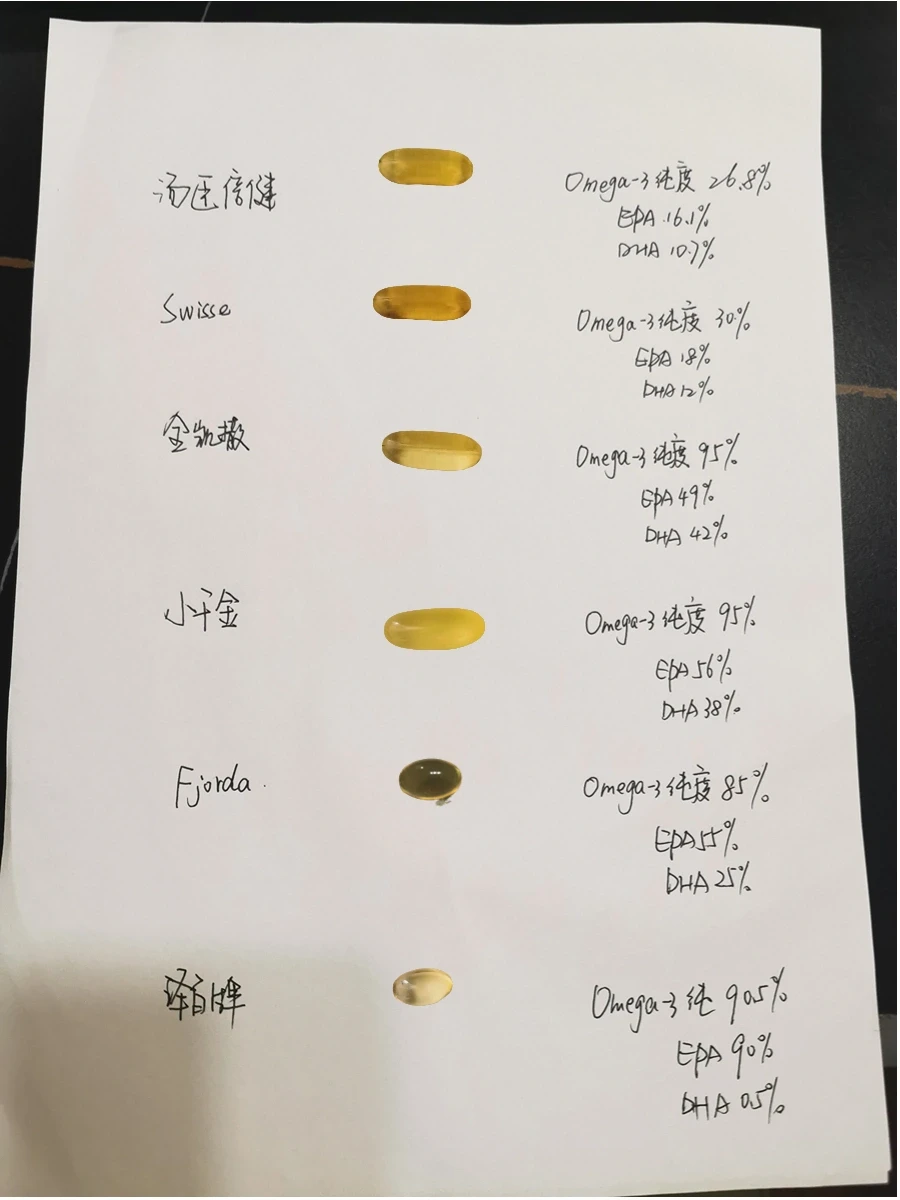 汤臣倍健
Omega-3 纯度 26.8%
EPA 16.1%
DHA 10.7%
Swisse
Omega-3 纯度 30%
EPA 18%
DHA 12%
金凯撒
Omega-3 纯度 95%
EPA 49%
DHA 42%
小千金
Omega-3 纯度 95%
EPA 56%
DHA 38%
Fjorda
Omega-3 纯度 85%
EPA 55%
DHA 25%
Omega-3 纯 90.5%
EPA 90%
DHA 0.5%